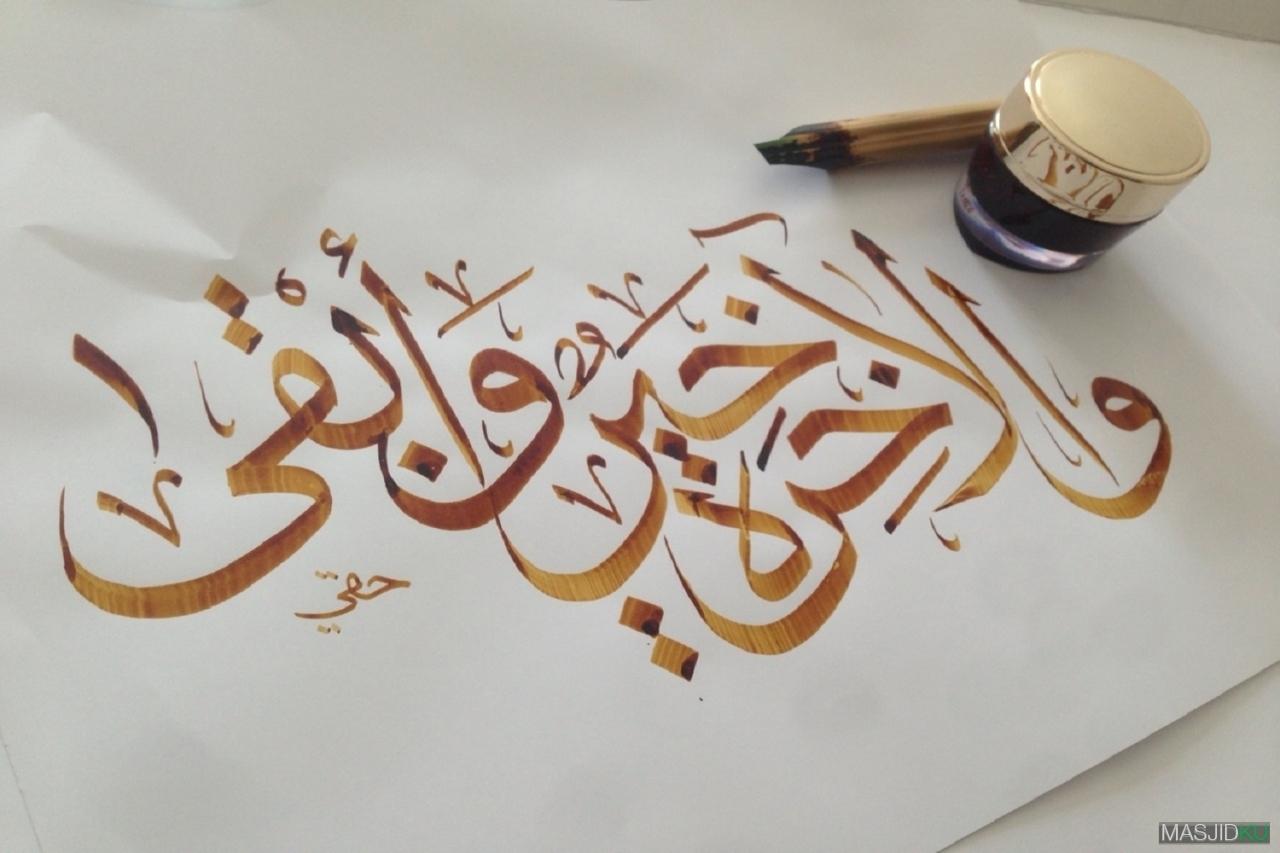 وَالْآخِرَةُ خَيْرٌ وَأَبْقَىٰ
حقي
MASJIDKU